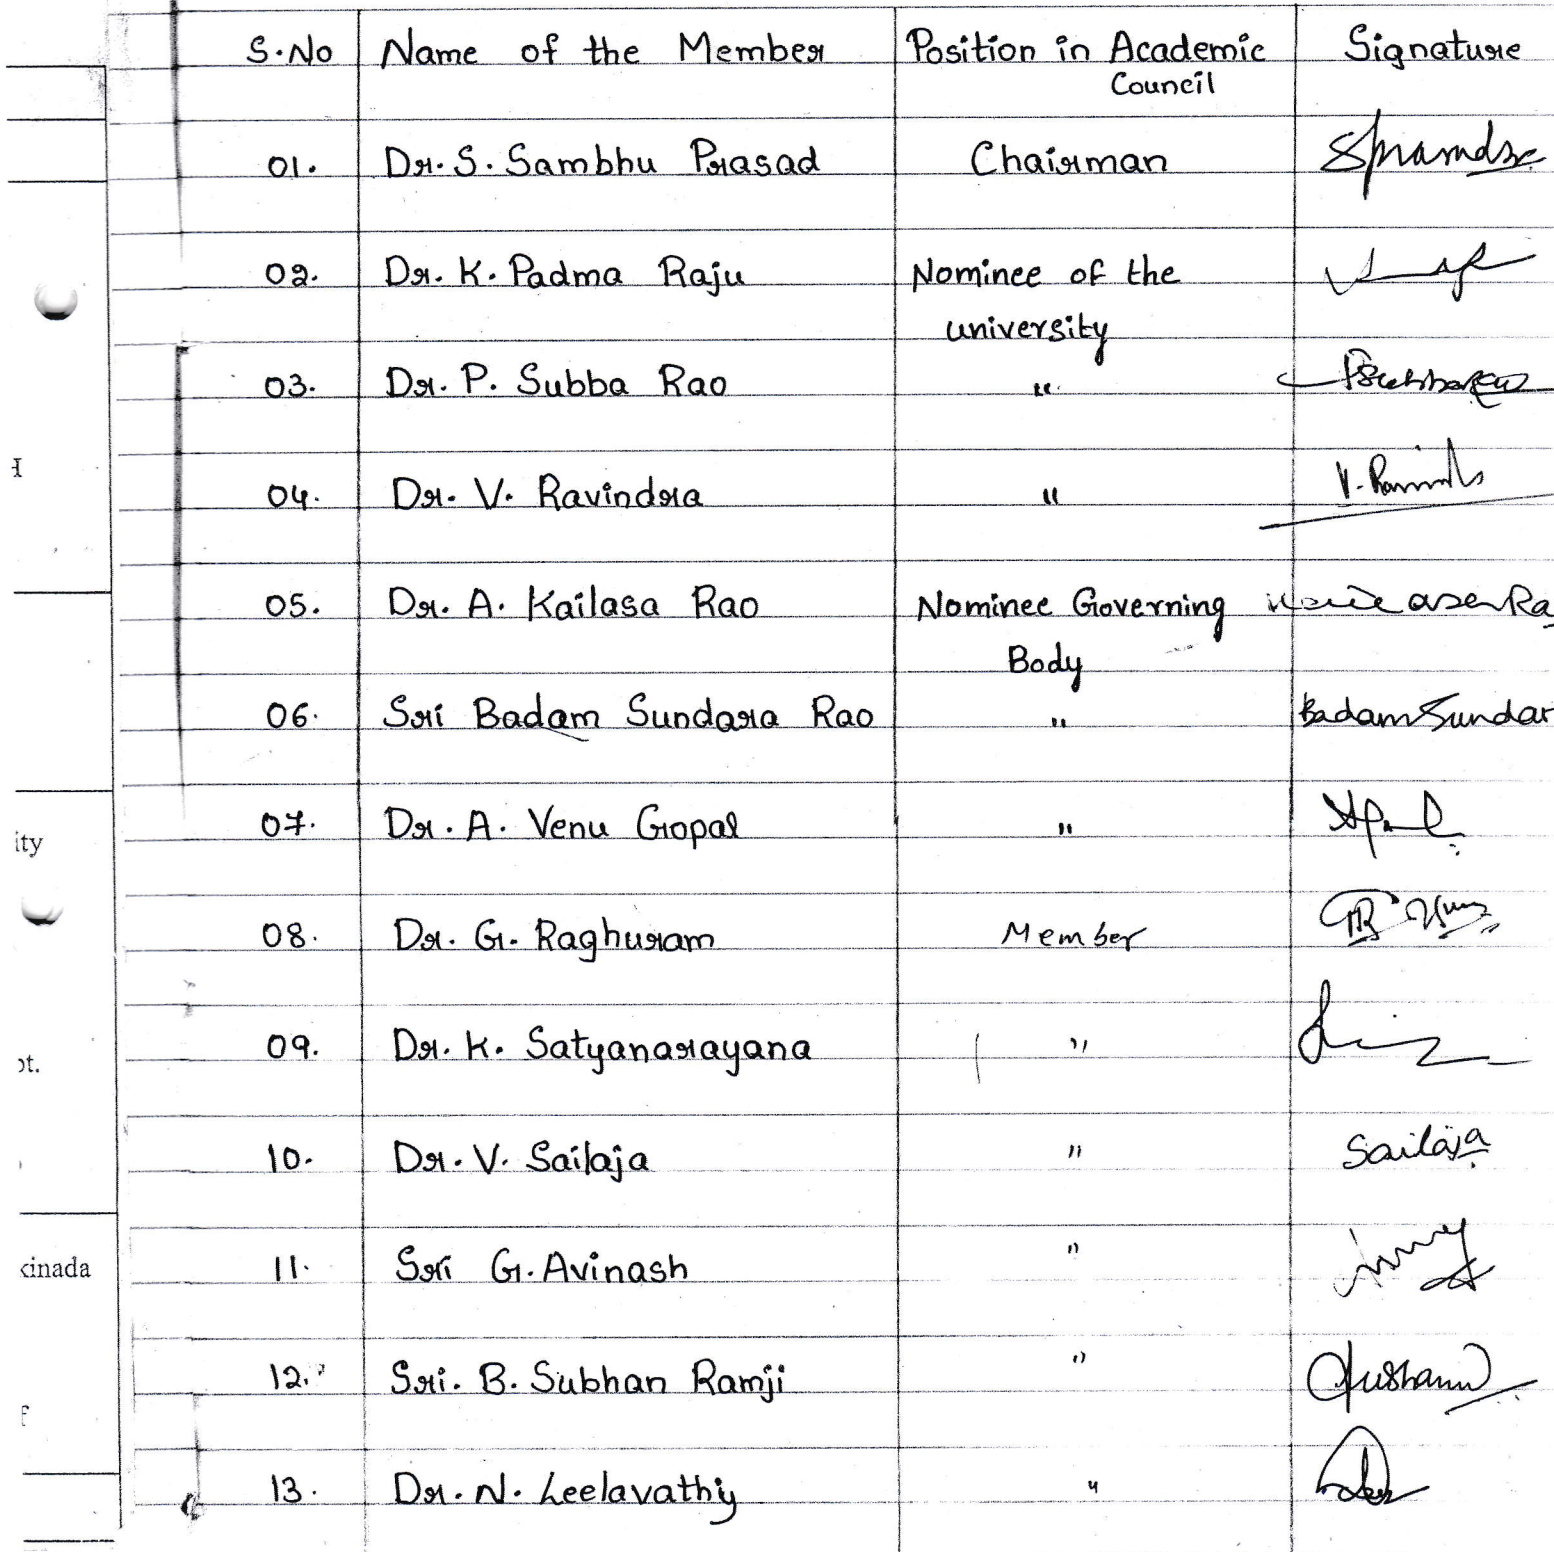 S.No Name of the Member Position in Academic Signature
Council
01. Dr. S. Sambhu Prasad Chairman
02. Dr. K. Padma Raju Nominee of the
university
03. Dr. P. Subba Rao "
04. Dr. V. Ravindra "
05. Dr. A. Kailasa Rao Nominee Governing
Body
06. Sri Badam Sundara Rao " Badam Sundar
07. Dr. A. Venu Gopal "
ity
08. Dr. G. Raghuram Member
09. Dr. K. Satyanarayana "
ot.
10. Dr. V. Sailaja " Sailaja
11. Sri G. Avinash "
cinada
12. Sri. B. Subhan Ramji "
f
13. Dr. N. Leelavathiy "